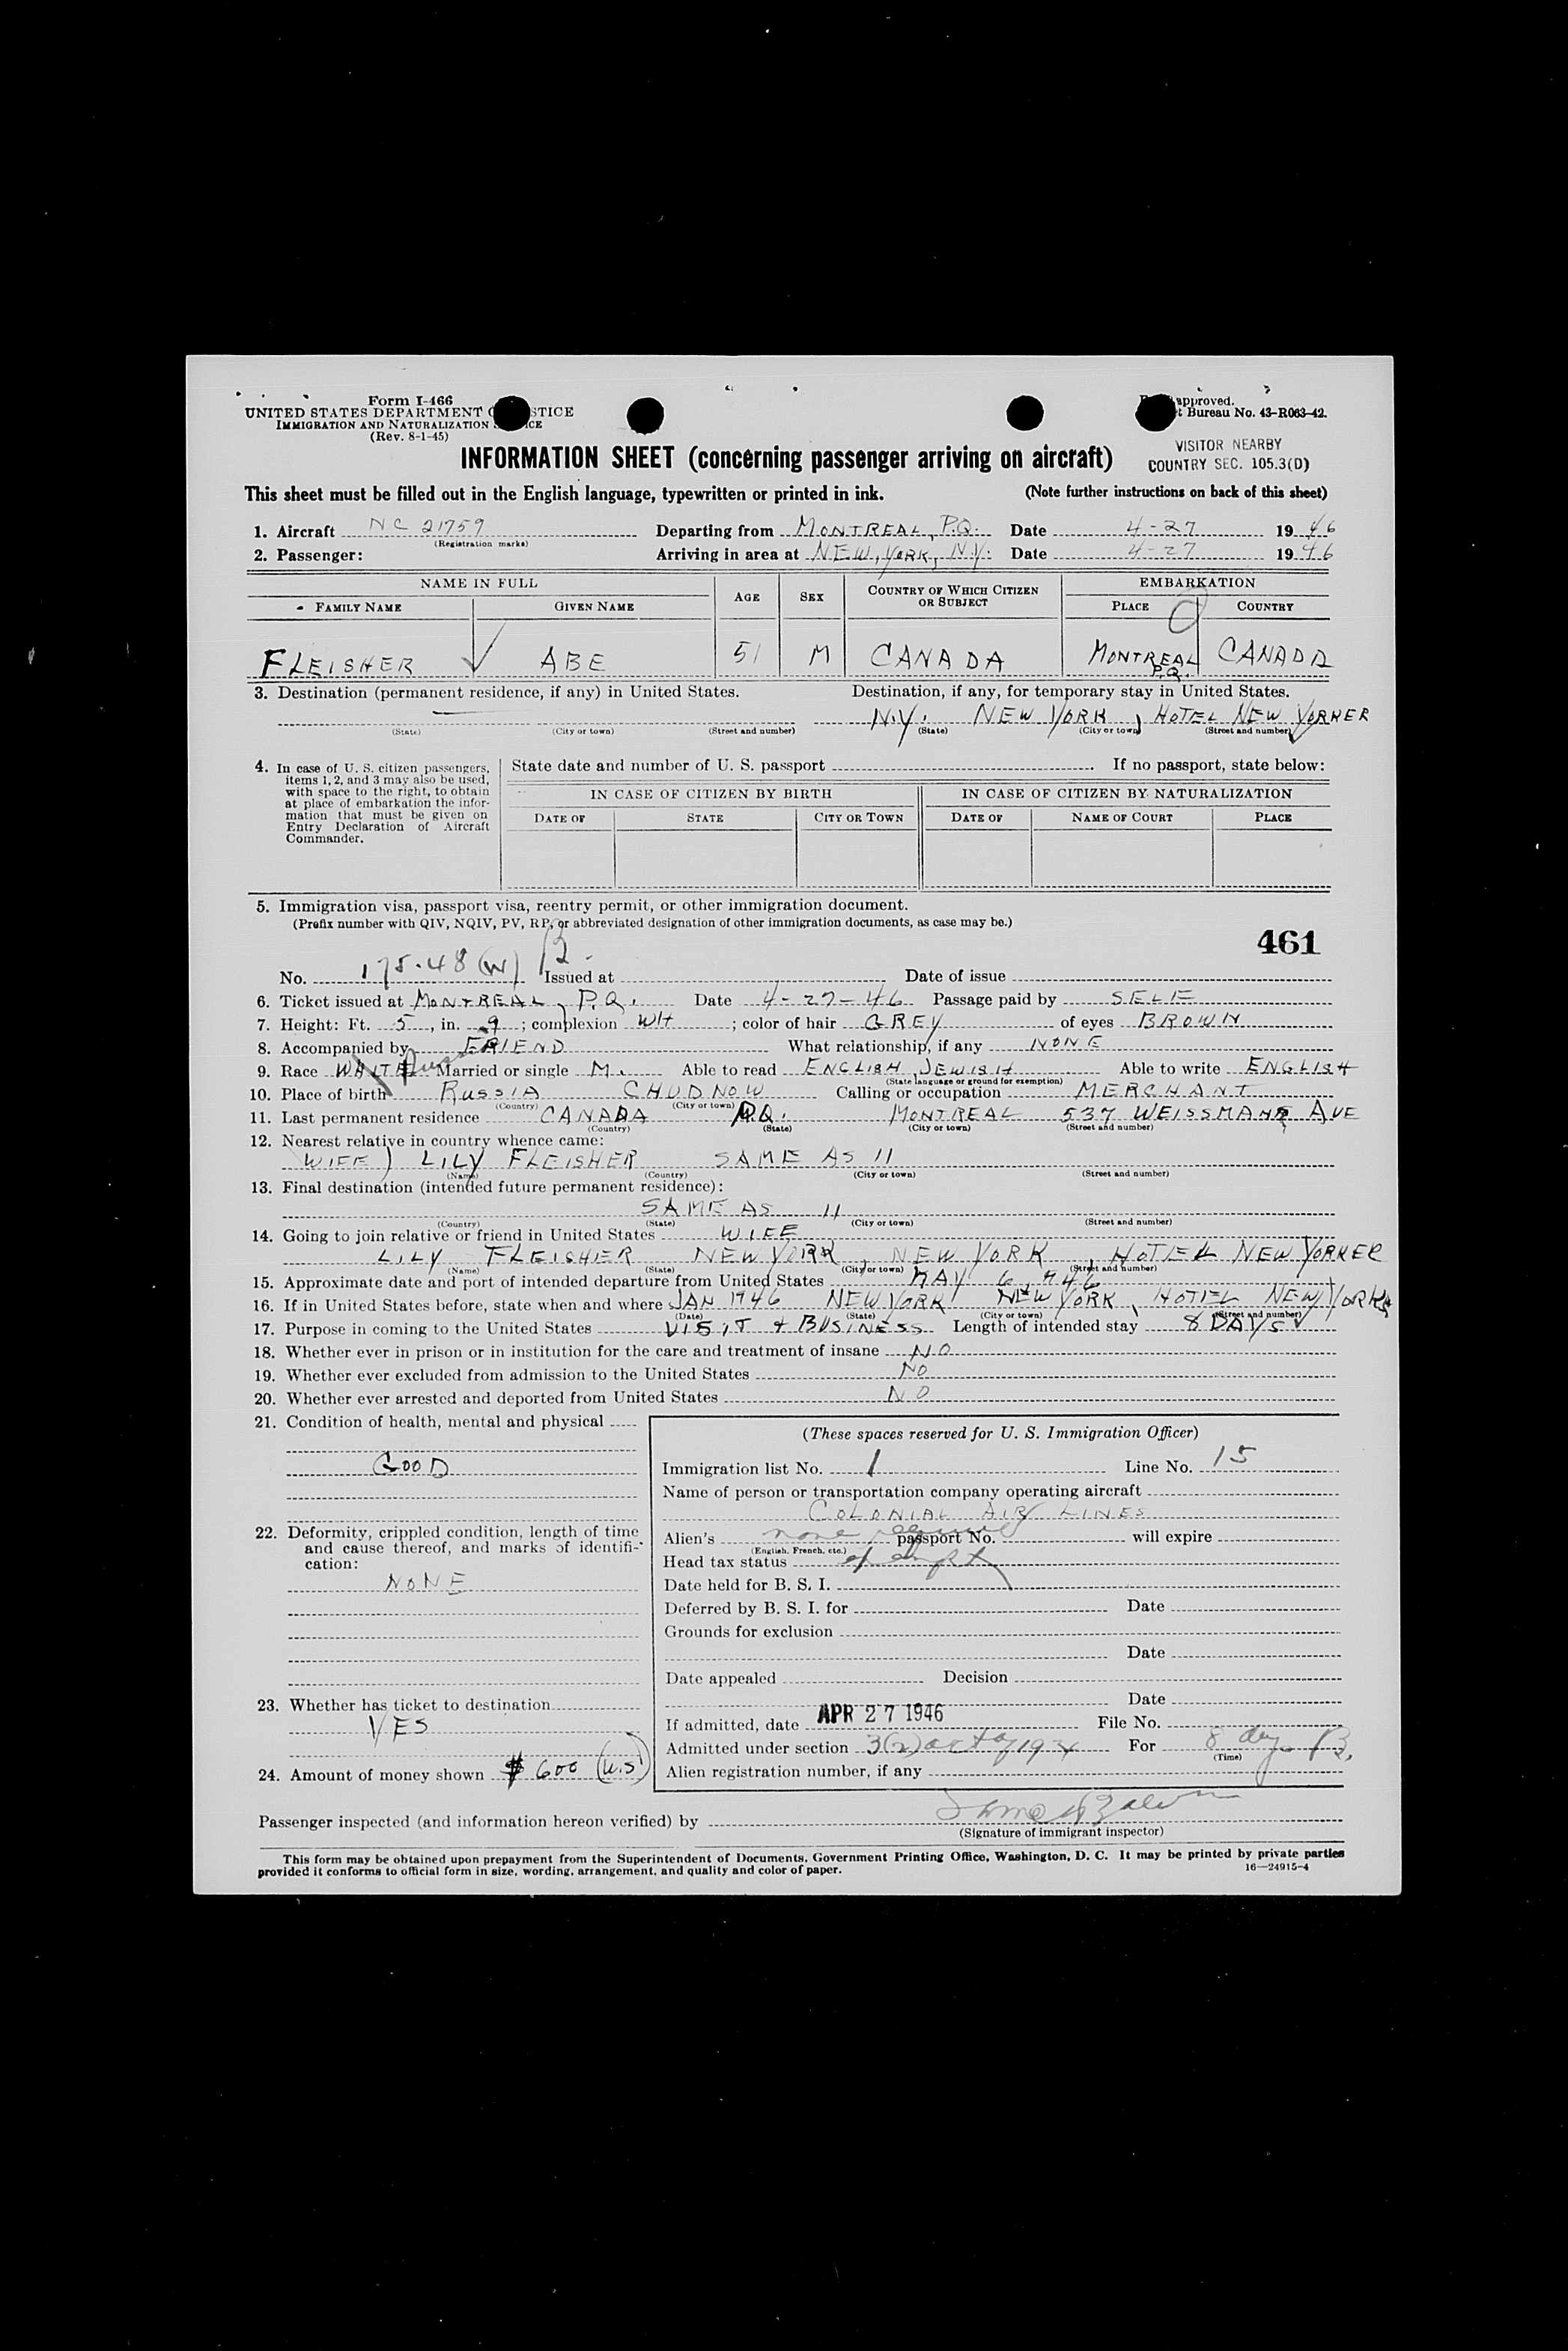 Form I-466
UNITED STATES DEPARTMENT STICE
IMMIGRATION AND NATURALIZATION ICE
(Rev. 8-1-45)
approved.
t Bureau No. 43-R063-42.
VISITOR NEARBY
COUNTRY SEC. 105.3(D)
INFORMATION SHEET (concerning passenger arriving on aircraft)
This sheet must be filled out in the English language, typewritten or printed in ink. (Note further instructions on back of this sheet)
1. Aircraft NC 21759 Departing from MONTREAL, P.Q. Date 4-27 1946
(Registration marks)
2. Passenger: Arriving in area at NEW YORK, N.Y. Date 4-27 1946
NAME IN FULL AGE SEX COUNTRY OF WHICH CITIZEN OR SUBJECT EMBARKATION
FAMILY NAME GIVEN NAME PLACE COUNTRY
FLEISHER ABE 51 M CANADA MONTREAL P.Q. CANADA
3. Destination (permanent residence, if any) in United States. Destination, if any, for temporary stay in United States.
N.Y. NEW YORK, HOTEL NEW YORKER
(State) (City or town) (Street and number) (State) (City or town) (Street and number)
4. In case of U. S. citizen passengers, items 1, 2, and 3 may also be used, with space to the right, to obtain at place of embarkation the information that must be given on Entry Declaration of Aircraft Commander.
State date and number of U. S. passport If no passport, state below:
IN CASE OF CITIZEN BY BIRTH IN CASE OF CITIZEN BY NATURALIZATION
DATE OF STATE CITY OR TOWN DATE OF NAME OF COURT PLACE
5. Immigration visa, passport visa, reentry permit, or other immigration document.
(Prefix number with QIV, NQIV, PV, RP, or abbreviated designation of other immigration documents, as case may be.)
461
No. 175.48 (W) Issued at Date of issue
6. Ticket issued at MONTREAL, P.Q. Date 4-27-46 Passage paid by SELF
7. Height: Ft. 5, in. 9; complexion WH; color of hair GREY of eyes BROWN
8. Accompanied by FRIEND What relationship, if any NONE
9. Race WHITE Married or single M. Able to read ENGLISH, JEWISH Able to write ENGLISH
(State language or ground for exemption)
10. Place of birth RUSSIA CHUDNOW Calling or occupation MERCHANT
(Country) (City or town)
11. Last permanent residence CANADA P.Q. MONTREAL 537 WEISSMANS AVE
(Country) (State) (City or town) (Street and number)
12. Nearest relative in country whence came:
WIFE) LILY FLEISHER SAME AS 11
(Name) (Country) (City or town) (Street and number)
13. Final destination (intended future permanent residence):
SAME AS 11
(Country) (State) (City or town) (Street and number)
14. Going to join relative or friend in United States WIFE
LILY FLEISHER NEW YORK, NEW YORK, HOTEL NEW YORKER
(Name) (State) (City or town) (Street and number)
15. Approximate date and port of intended departure from United States MAY 6, 1946
16. If in United States before, state when and where JAN 1946 NEW YORK NEW YORK, HOTEL NEW YORKER
(Date) (State) (City or town) (Street and number)
17. Purpose in coming to the United States VISIT & BUSINESS Length of intended stay 8 DAYS
18. Whether ever in prison or in institution for the care and treatment of insane NO
19. Whether ever excluded from admission to the United States NO
20. Whether ever arrested and deported from United States NO
21. Condition of health, mental and physical
GOOD
22. Deformity, crippled condition, length of time and cause thereof, and marks of identification:
NONE
23. Whether has ticket to destination
YES
24. Amount of money shown $ 600 (U.S)
(These spaces reserved for U. S. Immigration Officer)
Immigration list No. 1 Line No. 15
Name of person or transportation company operating aircraft
COLONIAL AIR LINES
Alien's none required passport No. will expire
(English, French, etc.)
Head tax status exempt
Date held for B. S. I.
Deferred by B. S. I. for Date
Grounds for exclusion
Date
Date appealed Decision
Date
If admitted, date APR 27 1946 File No.
Admitted under section 3(2) act of 1924 For 8 days
(Time)
Alien registration number, if any
Passenger inspected (and information hereon verified) by
(Signature of immigrant inspector)
This form may be obtained upon prepayment from the Superintendent of Documents, Government Printing Office, Washington, D. C. It may be printed by private parties
provided it conforms to official form in size, wording, arrangement, and quality and color of paper. 16—24915-4